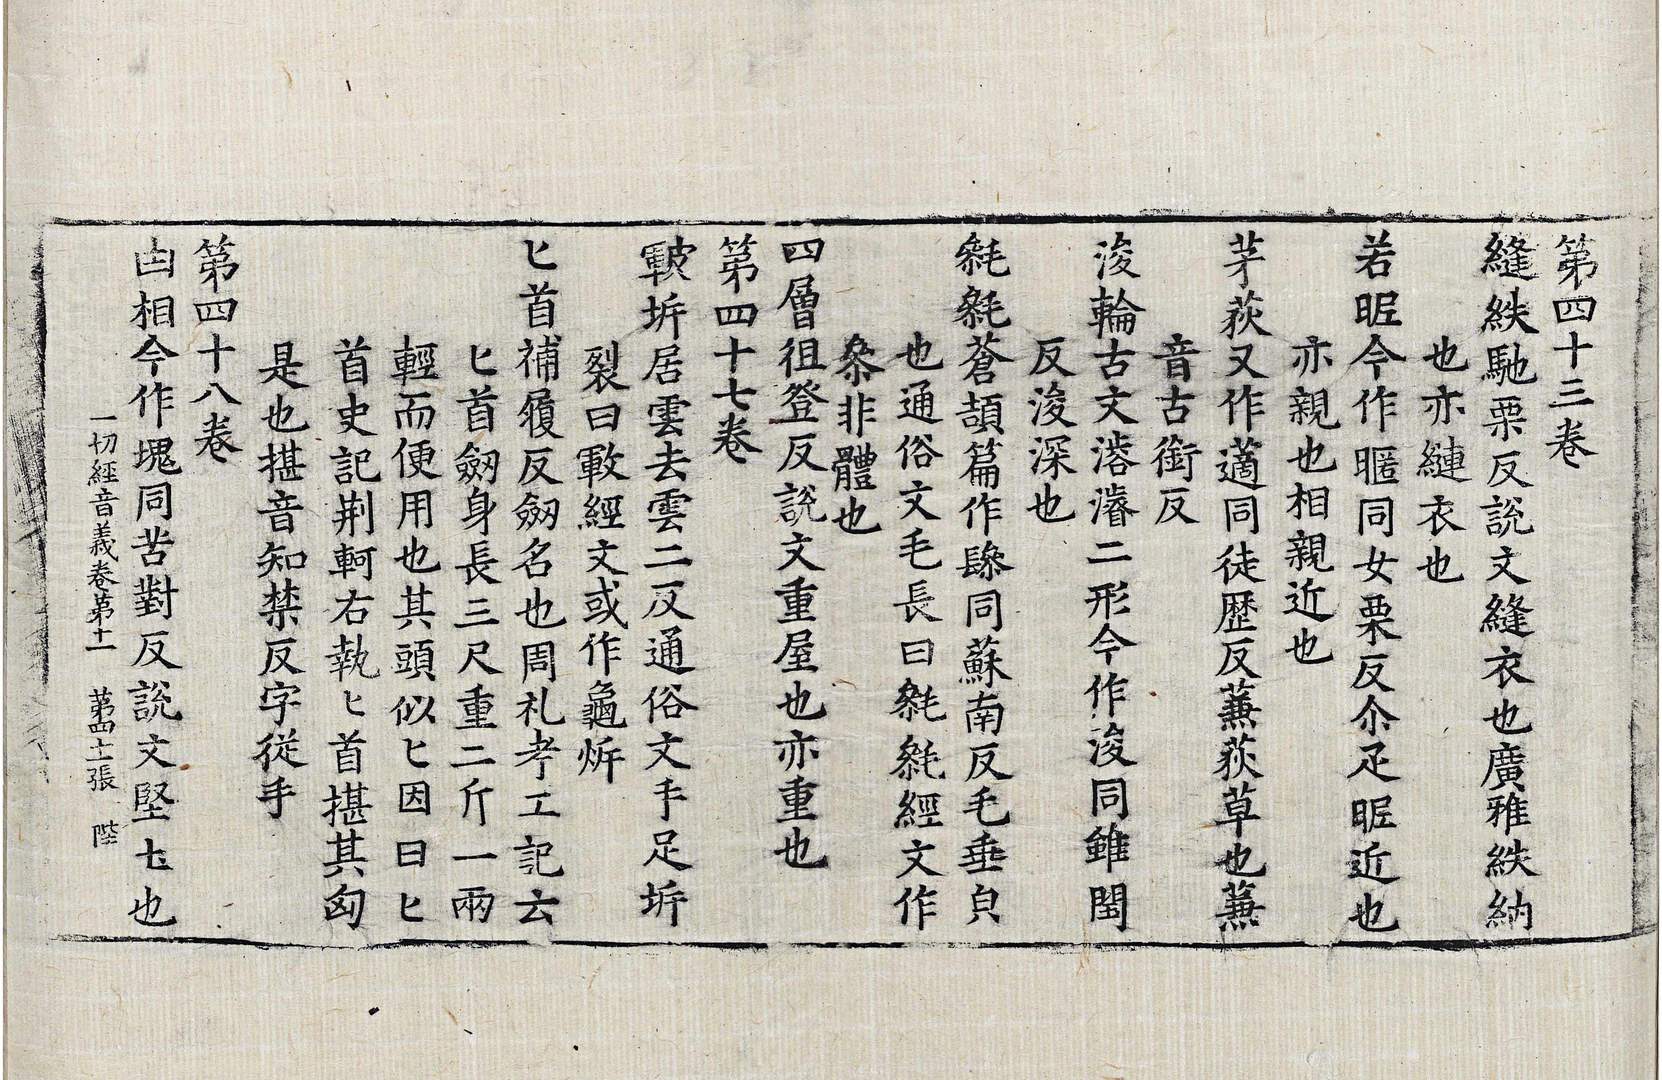 第四十三卷
縫紩馳栗反説文縫衣也廣雅紩納
也亦縺衣也
若昵今作暱同女栗反尒疋昵近也
亦親也相親近也
茅荻又作藡同徒歷反蒹荻草也蒹
音古銜反
浚輪古文濬𤀹二形今作浚同雖閏
反浚深也
毿毿蒼頡篇作𩭹同蘇南反毛垂皃
也通俗文毛長曰毿毿經文作
叅非體也
四層徂登反説文重屋也亦重也
第四十七卷
皸坼居雲去雲二反通俗文手足坼
裂曰皸經文或作龜㡿
匕首補履反劒名也周礼考工記云
匕首劒身長三尺重二斤一兩
輕而便用也其頭似匕因曰匕
首史記荆軻右執匕首揕其匈
是也揕音知禁反字從手
第四十八卷
凷相今作塊同苦對反説文堅𡈽也
一切經音義卷第十一 第四十一張 陛